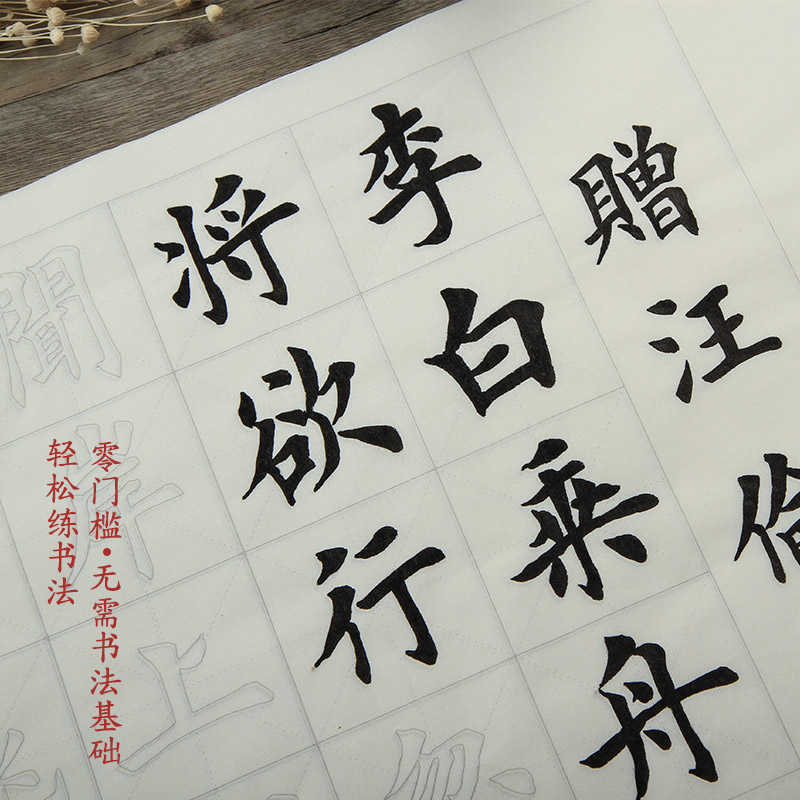 贈汪
李白乘舟
将欲行忽
聞岸上
零门槛•无需书法基础
轻松练书法